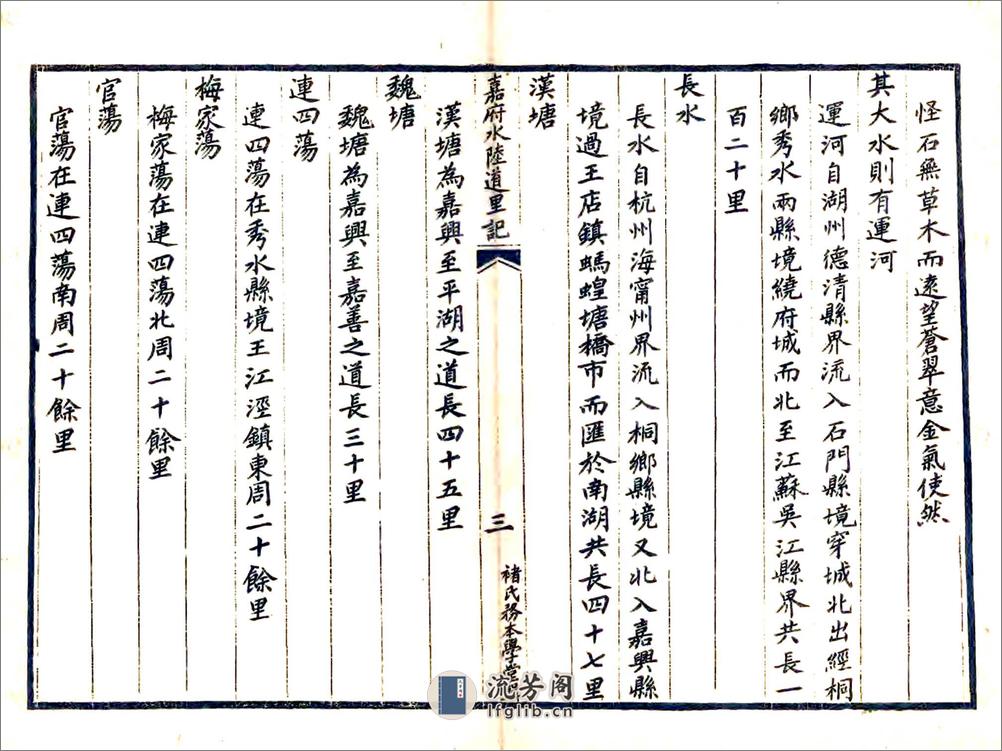 怪石無草木而遠望蒼翠意金氣使然
其大水則有運河
運河自湖州德清縣界流入石門縣境穿城北出經桐
鄉秀水兩縣境繞府城而北至江蘇吳江縣界共長一
百二十里
長水
長水自杭州海甯州界流入桐鄉縣境又北入嘉興縣
境過王店鎮螞蝗塘橋市而匯於南湖共長四十七里
漢塘
嘉府水陸道里記
三
褚氏務本學堂
漢塘為嘉興至平湖之道長四十五里
魏塘
魏塘為嘉興至嘉善之道長三十里
連四蕩
連四蕩在秀水縣境王江涇鎮東周二十餘里
梅家蕩
梅家蕩在連四蕩北周二十餘里
官蕩
官蕩在連四蕩南周二十餘里
流芳阁
lfglib.cn